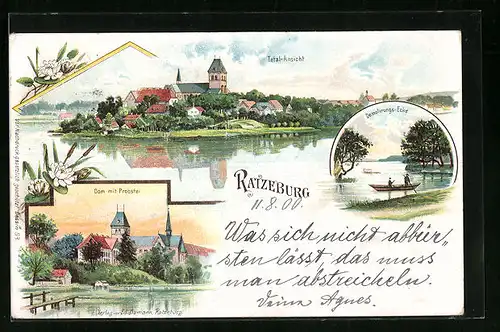 Total-Ansicht
Demolirungs-Ecke
Dom mit Propstei
RATZEBURG
11.8.00.
Was sich nicht abbür-
sten lässt, das muss
man abstreicheln.
Deine Agnes.
Verlag Ratzeburg